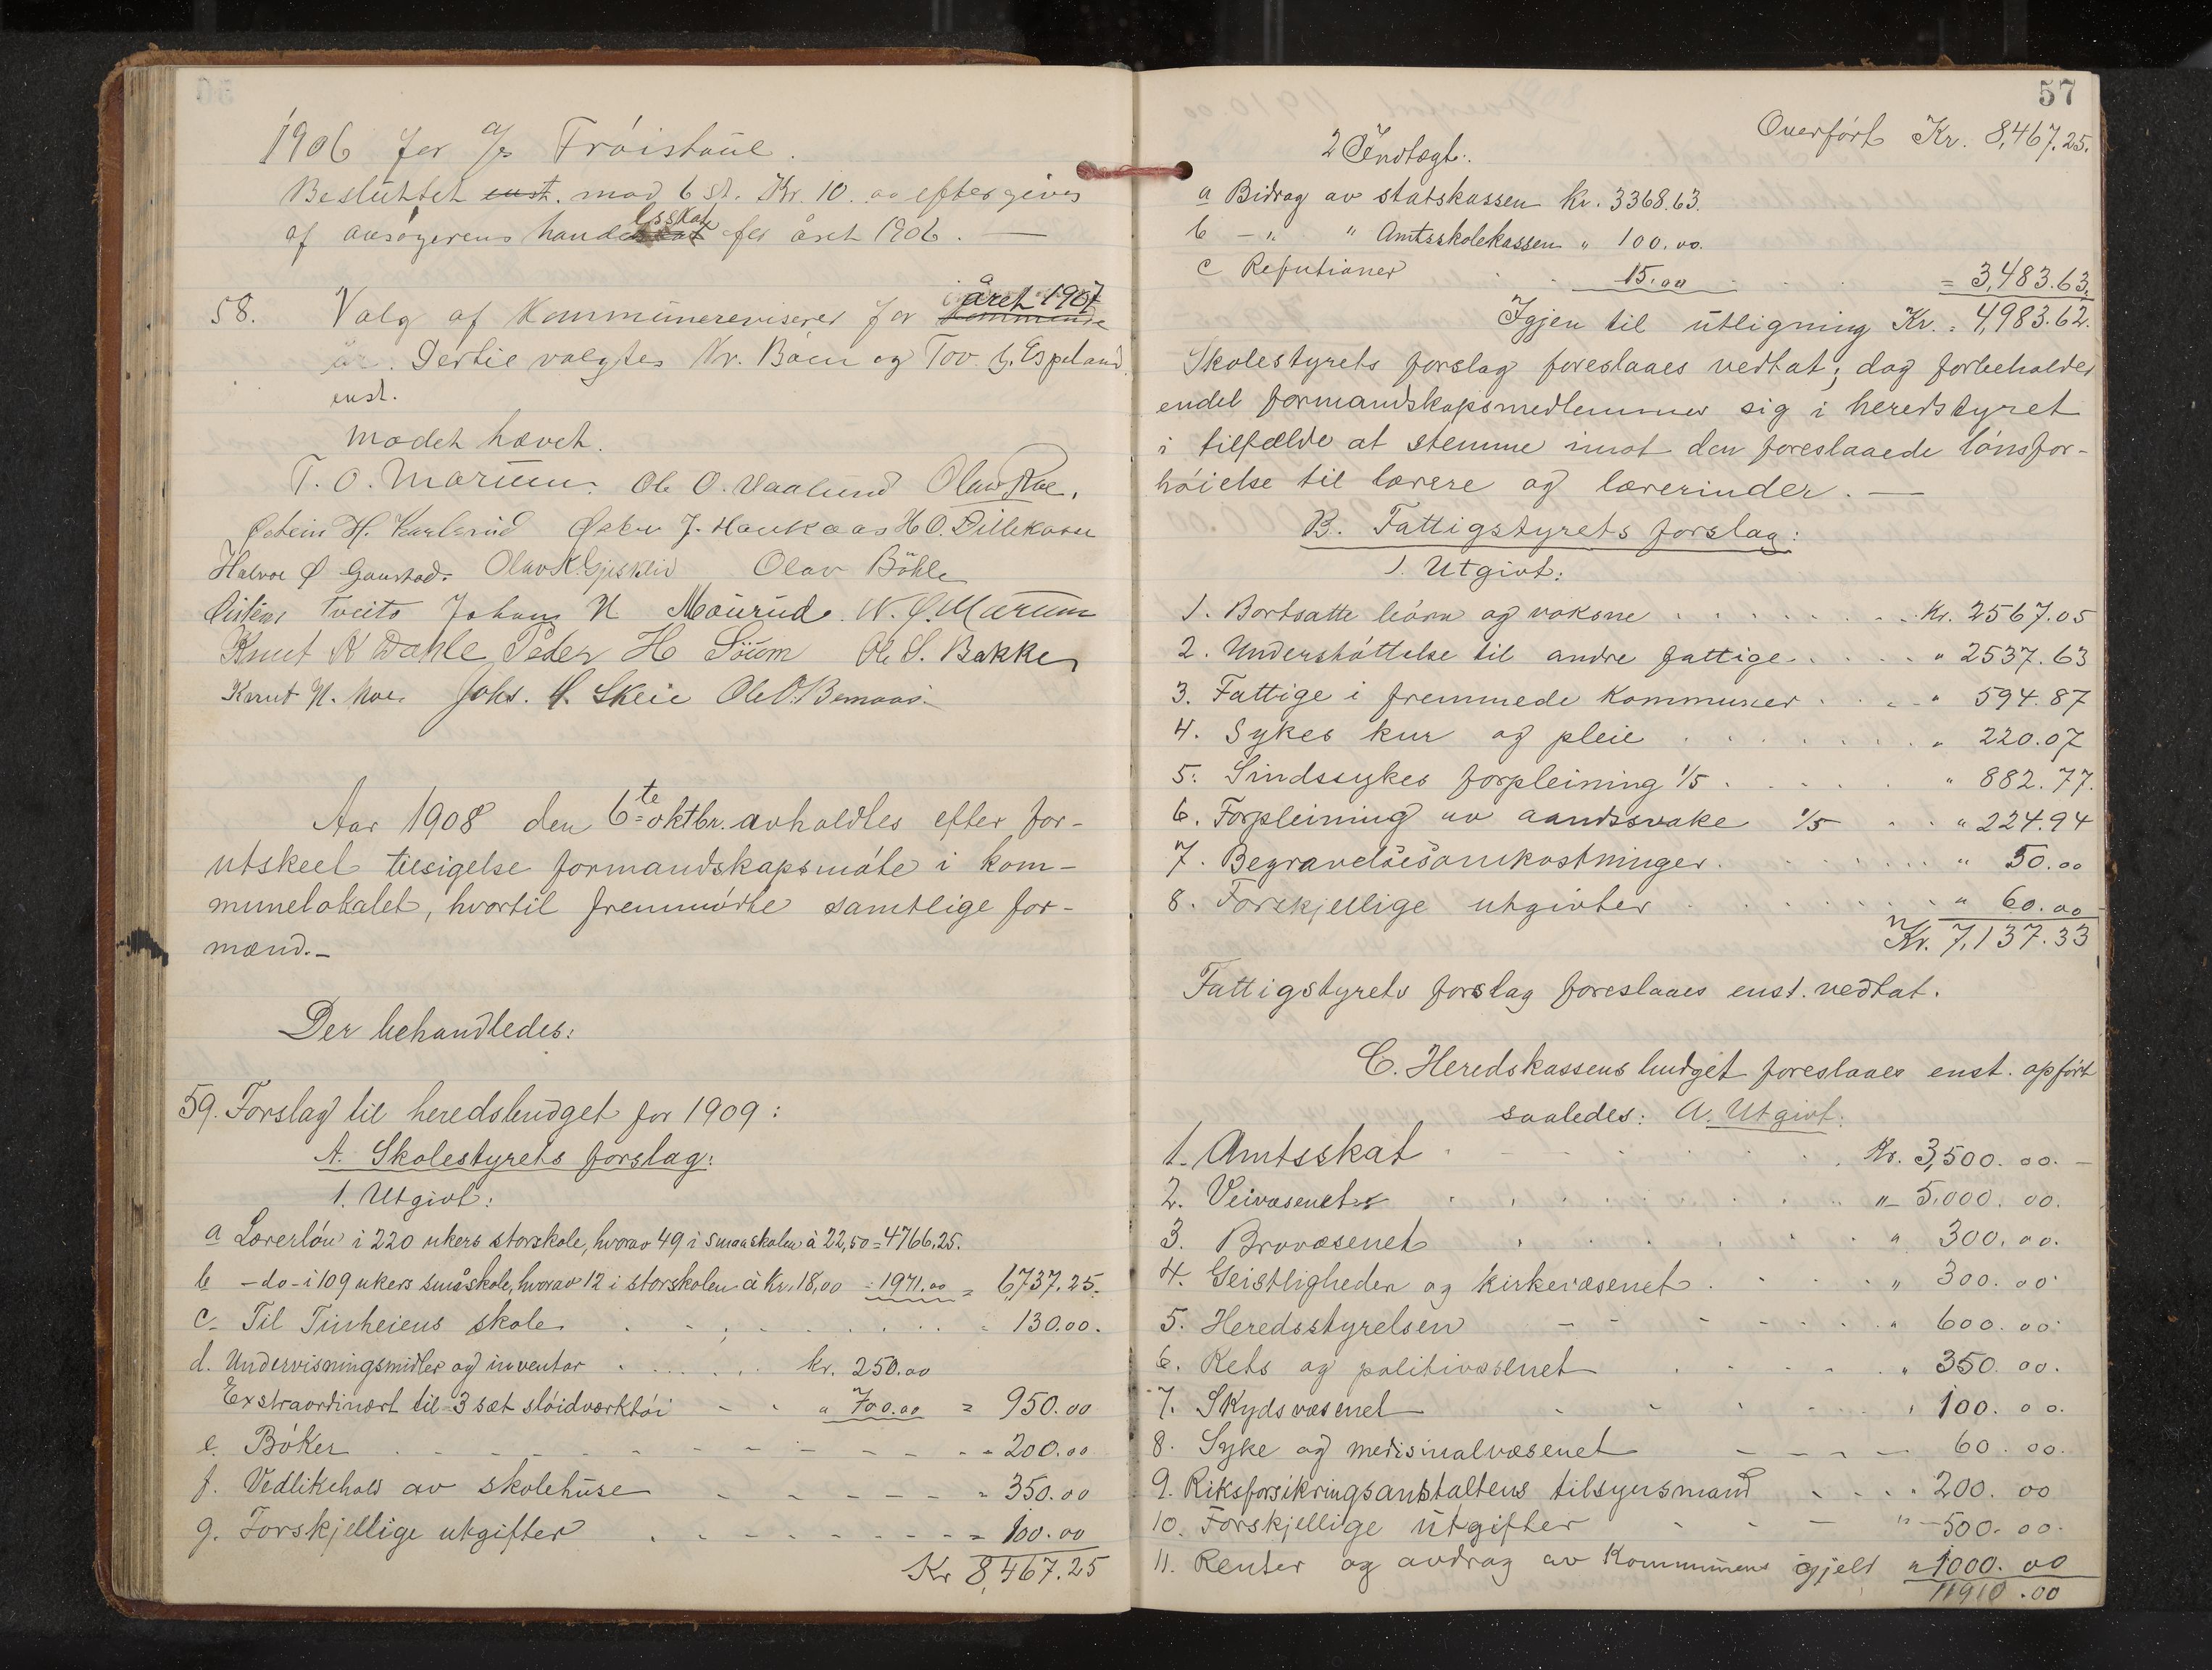 1906 for a/s Tröistaul.
Besluttet enst. mod 6 st. Kr. 10.00 eftergives
af ansøgerens handelsskat for året 1906. —
58. Valg af Kommunerevisorer for året 1907 kommende
år. Dertil valgtes Kr. Bøen og Tov G. Espeland
enst.
Mødet hævet.
T. O. Marum. Ole O. Vaalund Olav Roe.
Østein H. Karlsrud J. Haukaas H O. Dillekaasa
Halvor Ø Gaustad. Olav K. Olav Böhle
Øistein Tveito Johans N Maurud. N. Ø. Marum
Knut K Dahle Peder H Söum Ole S. Bakken
Knut N. Johs. H. Skeie Ole O. Bernaas.
Aar 1908 den 6te oktbr. avholdtes efter for-
utskeet tilsigelse formandskapsmöte i kom-
munelokalet, hvortil fremmødte samtlige for-
mænd.-
Der behandledes:
59. Forslag til heredsbudget for 1909:
A. Skolestyrets forslag:
1. Utgivt:
a Lærerlön i 220 ukers storskole, hvorav 49 i smaaskolen à 22,50 = 4766,25.
b -do- i 109 ukers småskole, hvorav 12 i storskolen à Kr. 18,00 = 1971.00 = 6737.25.
c. Til Tinheiens skole 130.00.
d. Undervisningsmidler og inventar kr. 250.00
Exstraordinært til 3 sæt slöidværktöi " 700.00 = 950.00
e. Böker 200.00
f. Vedlikehold av skolehuse 350.00
g. Forskjellige utgifter = 100.00
Kr 8,467.25
57
Overført Kr. 8,467.25.
2 Indtægt.
a Bidrag av statskassen kr. 3368.63.
b - " " Amtsskolekassen " 100.00.
c Refutioner 15.00 = 3,483.63.
Igjen til utligning Kr. = 4,983.62.
Skolestyrets forslag foreslaaes vedtat; dog forbeholder
endel formandskapsmedlemmer sig i heredstyret
i tilfælde at stemme imot den foreslaaede lönsfor-
höielse til lærere og lærerinder. —
B. Fattigstyrets forslag:
1. Utgivt:
1. Bortsatte börn og voksne Kr. 2567.05
2. Understöttelse til andre fattige " 2537.63
3. Fattige i fremmede kommuner " 594.87
4. Sykes kur og pleie " 220.07
5. Sindssykes forpleining 1/5 " 882.77.
6. Forpleining av aandssvake 1/5 " 224.94
7. Begravelsesomkostninger " 50.00
8. Forskjellige utgivter " 60.00
Kr. 7,137.33
Fattigstyrets forslag foreslaaes enst. vedtat.
C. Heredskassens budget foreslaaes enst. opfört
saaledes: A. Utgivt:
1. Amtsskat Kr. 3,500.00.-
2. Veivæsenet " 5,000.00.
3. Brovæsenet " 300.00.
4. Geistligheden og kirkevæsenet " 300.00
5. Heredsstyrelsen " 600.00
6. Rets og politivæsenet " 350.00.
7. Skydsvæsenet " 100.00.
8. Syke og medisinalvæsenet 60.00.
9. Riksforsikringsanstaltens tilsynsmand 200.00
10. Forskjellige utgifter " 500.00.
11. Renter og avdrag av kommunens gjeld " 1000.00
11910.00